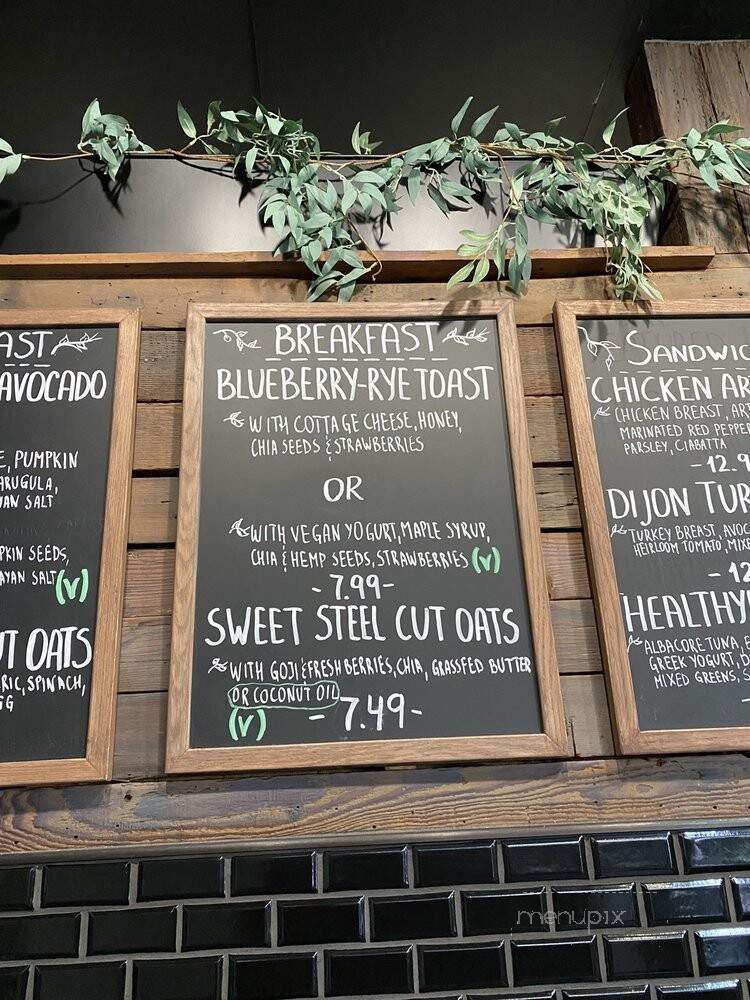 AST
AVOCADO
E, PUMPKIN
ARUGULA,
YAN SALT
PKIN SEEDS,
AYAN SALT (V)
UT OATS
RIC, SPINACH,
GG
BREAKFAST
BLUEBERRY-RYE TOAST
WITH COTTAGE CHEESE, HONEY,
CHIA SEEDS & STRAWBERRIES
OR
WITH VEGAN YOGURT, MAPLE SYRUP,
CHIA & HEMP SEEDS, STRAWBERRIES (V)
- 7.99 -
SWEET STEEL CUT OATS
WITH GOJI & FRESH BERRIES, CHIA, GRASSFED BUTTER
OR COCONUT OIL
(V) - 7.49 -
SANDWIC
CHICKEN AR
CHICKEN BREAST, ART
MARINATED RED PEPPER
PARSLEY, CIABATTA
- 12.9
DIJON TUR
TURKEY BREAST, AVOC
HEIRLOOM TOMATO, MIXE
- 12
HEALTHY
ALBACORE TUNA, E
GREEK YOGURT, D
MIXED GREENS, S
menupix